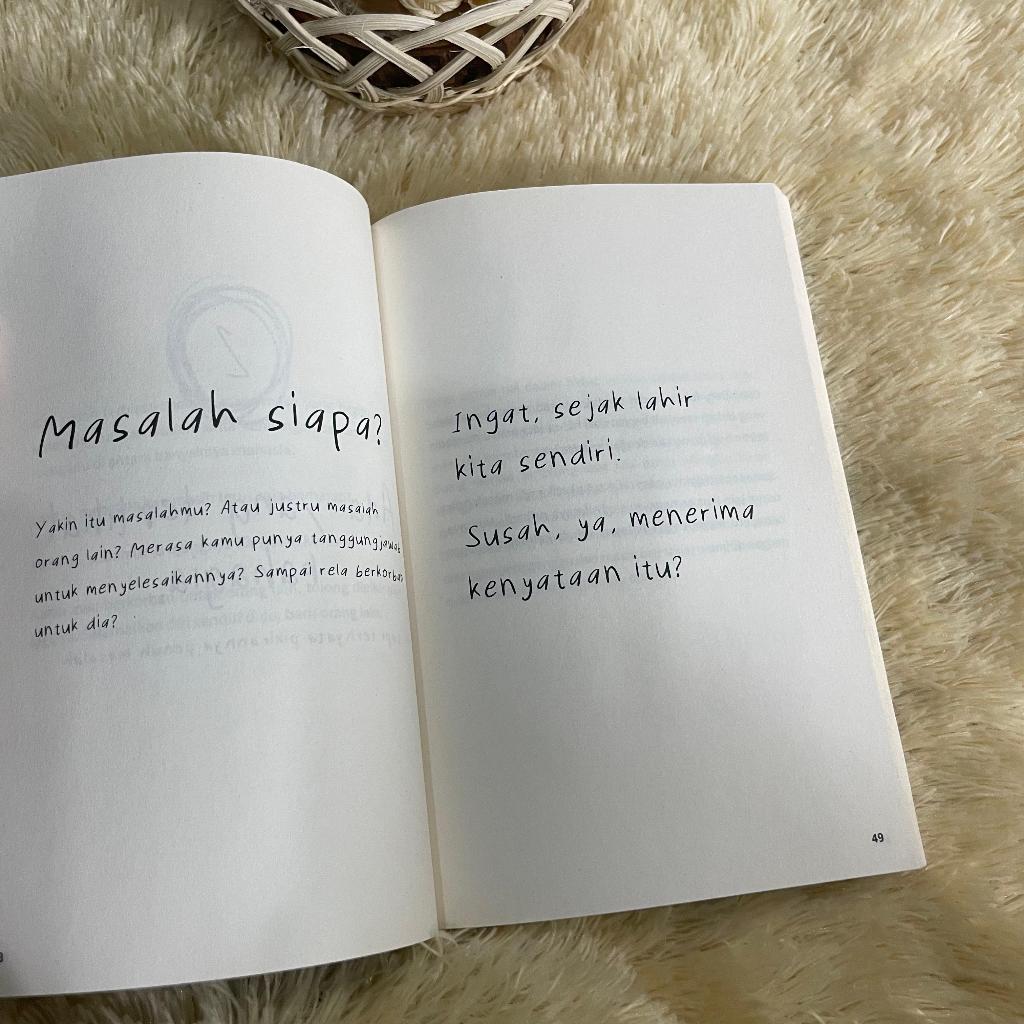 Masalah siapa?
Yakin itu masalahmu? Atau justru masalah
orang lain? Merasa kamu punya tanggungjawab
untuk menyelesaikannya? Sampai rela berkorban
untuk dia?
Ingat, sejak lahir
kita sendiri.
Susah, ya, menerima
kenyataan itu?
49